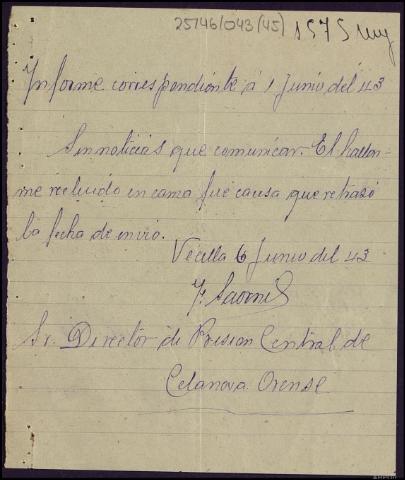 25746/043(45) 1575 muj
Informe correspondiente á 1 Junio del 43
Sin noticias que comunicar. El hallar=
me recluido en cama fué causa que retrasó
la fecha de envio.
Vecilla 6 Junio del 43
Sr. Director de Prision Central de
Celanova Orense